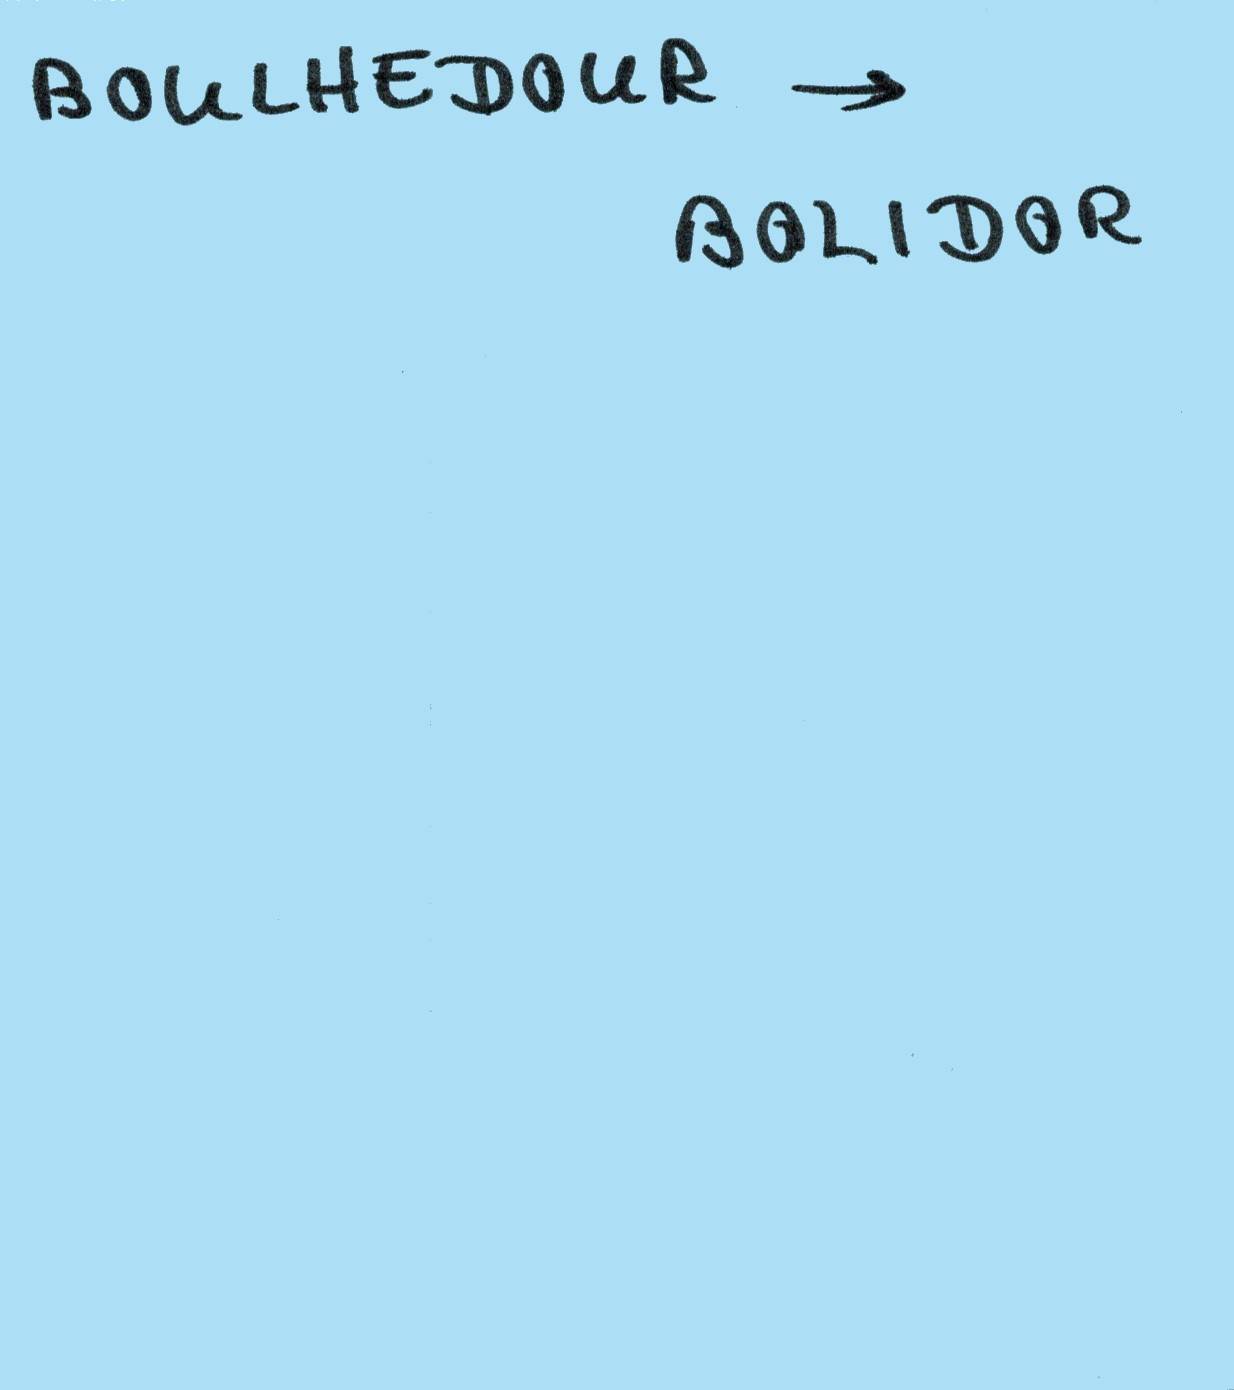 BOULHEDOUR →
BOLIDOR